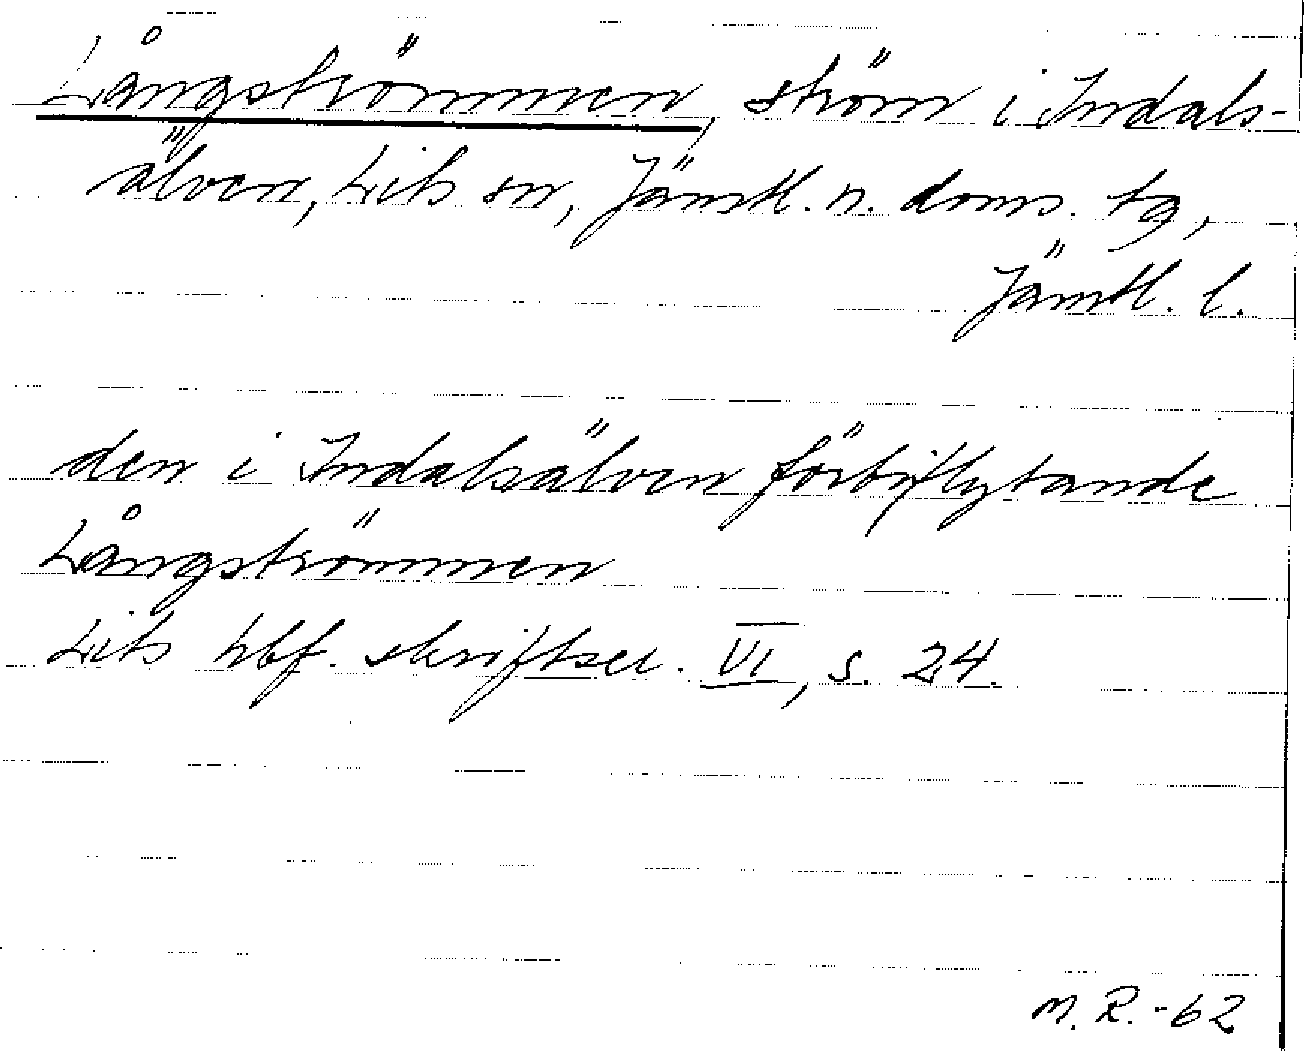 Långströmmen, ström i Indals-
älven, Lits sn, Jämtl. n. doms. tg,
Jämtl. l.
den i Indalsälven förbiflytande
Långströmmen
Lits hbf. skriftser. VI, s. 24.
M. R. -62